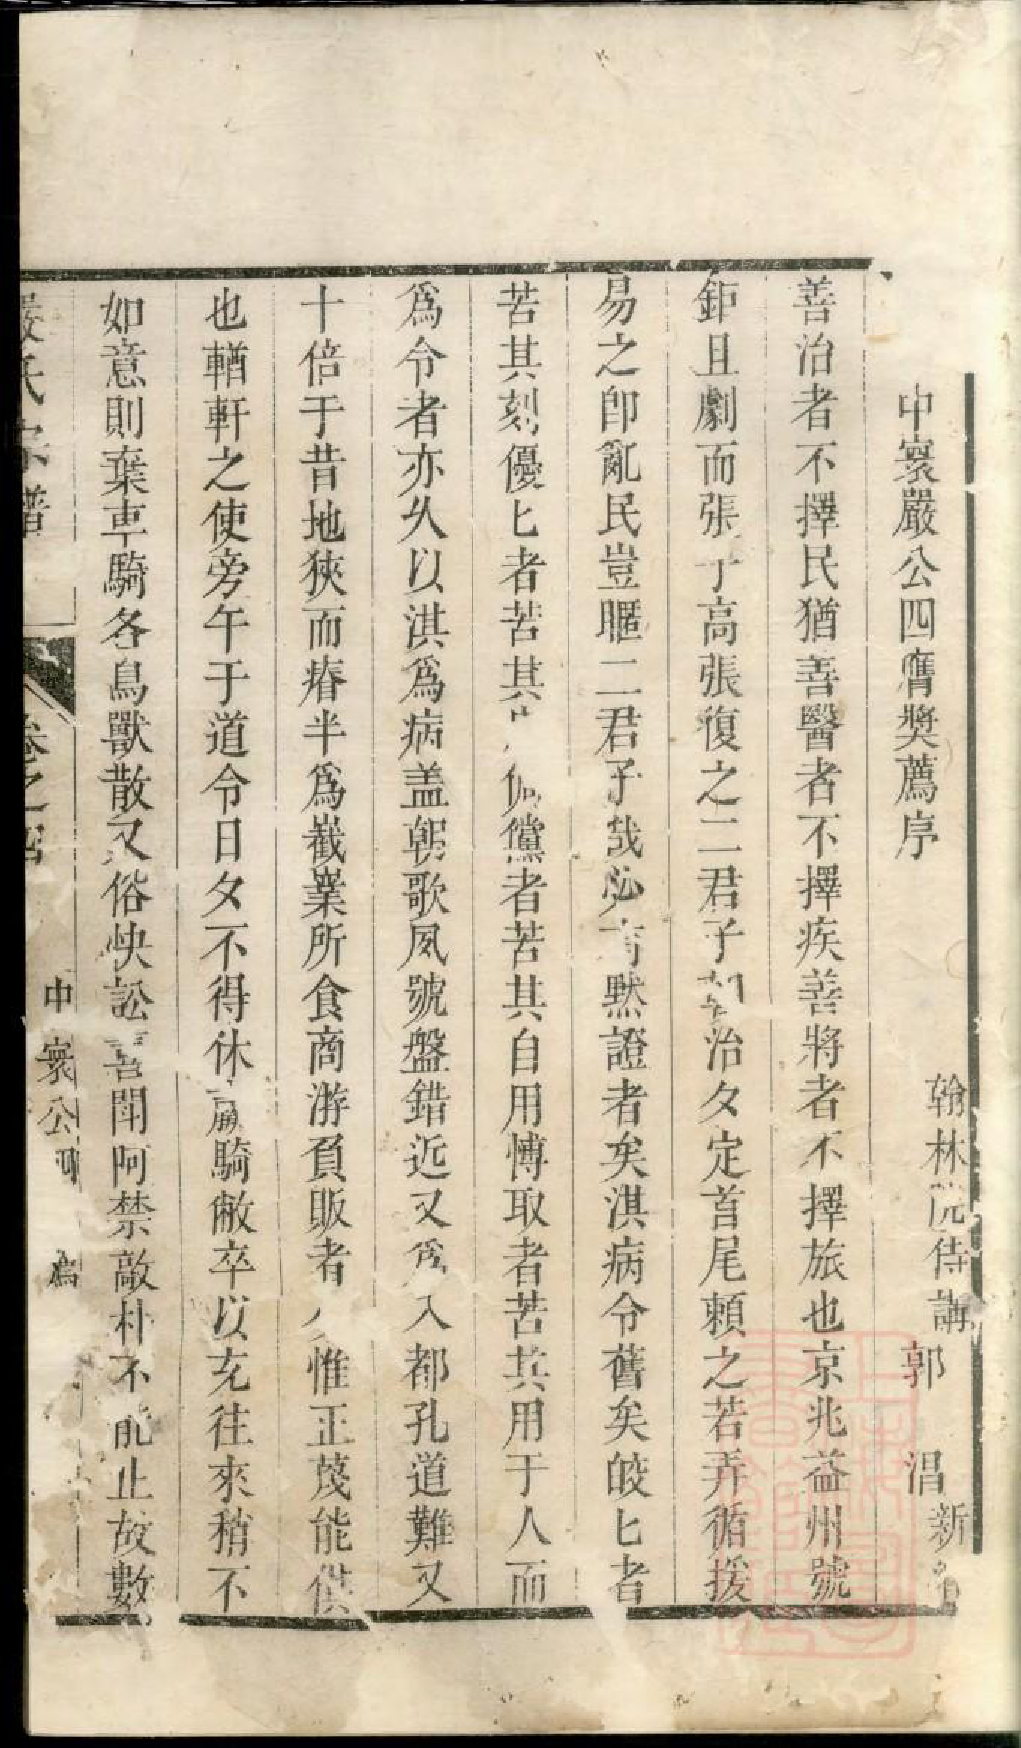 中寰嚴公四膺奬薦序
翰林院侍講郭淐新
善治者不擇民猶善醫者不擇疾善將者不擇旅也京兆益州號
鉅且劇而張子高張復之二君子治夂定首尾賴之若弄循援
易之卽亂民豈驅二君子哉必有默證者矣淇病令舊矣皎匕者
苦其刻優匕者苦其儻者苦其自用愽取者苦其用于人而
爲令者亦久以淇爲病盖朝歌夙號盤錯近又爲入都孔道難又
十倍于昔地狹而瘠半爲巀嶪所食商游負販者惟正蔑能供
也輶軒之使旁午于道令日夂不得休羸騎敝卒以充往來稍不
如意則棄車騎各鳥獸散又俗快訟喜鬥呵禁敲朴不能止故數
嚴氏宗譜
卷之四
中寰公